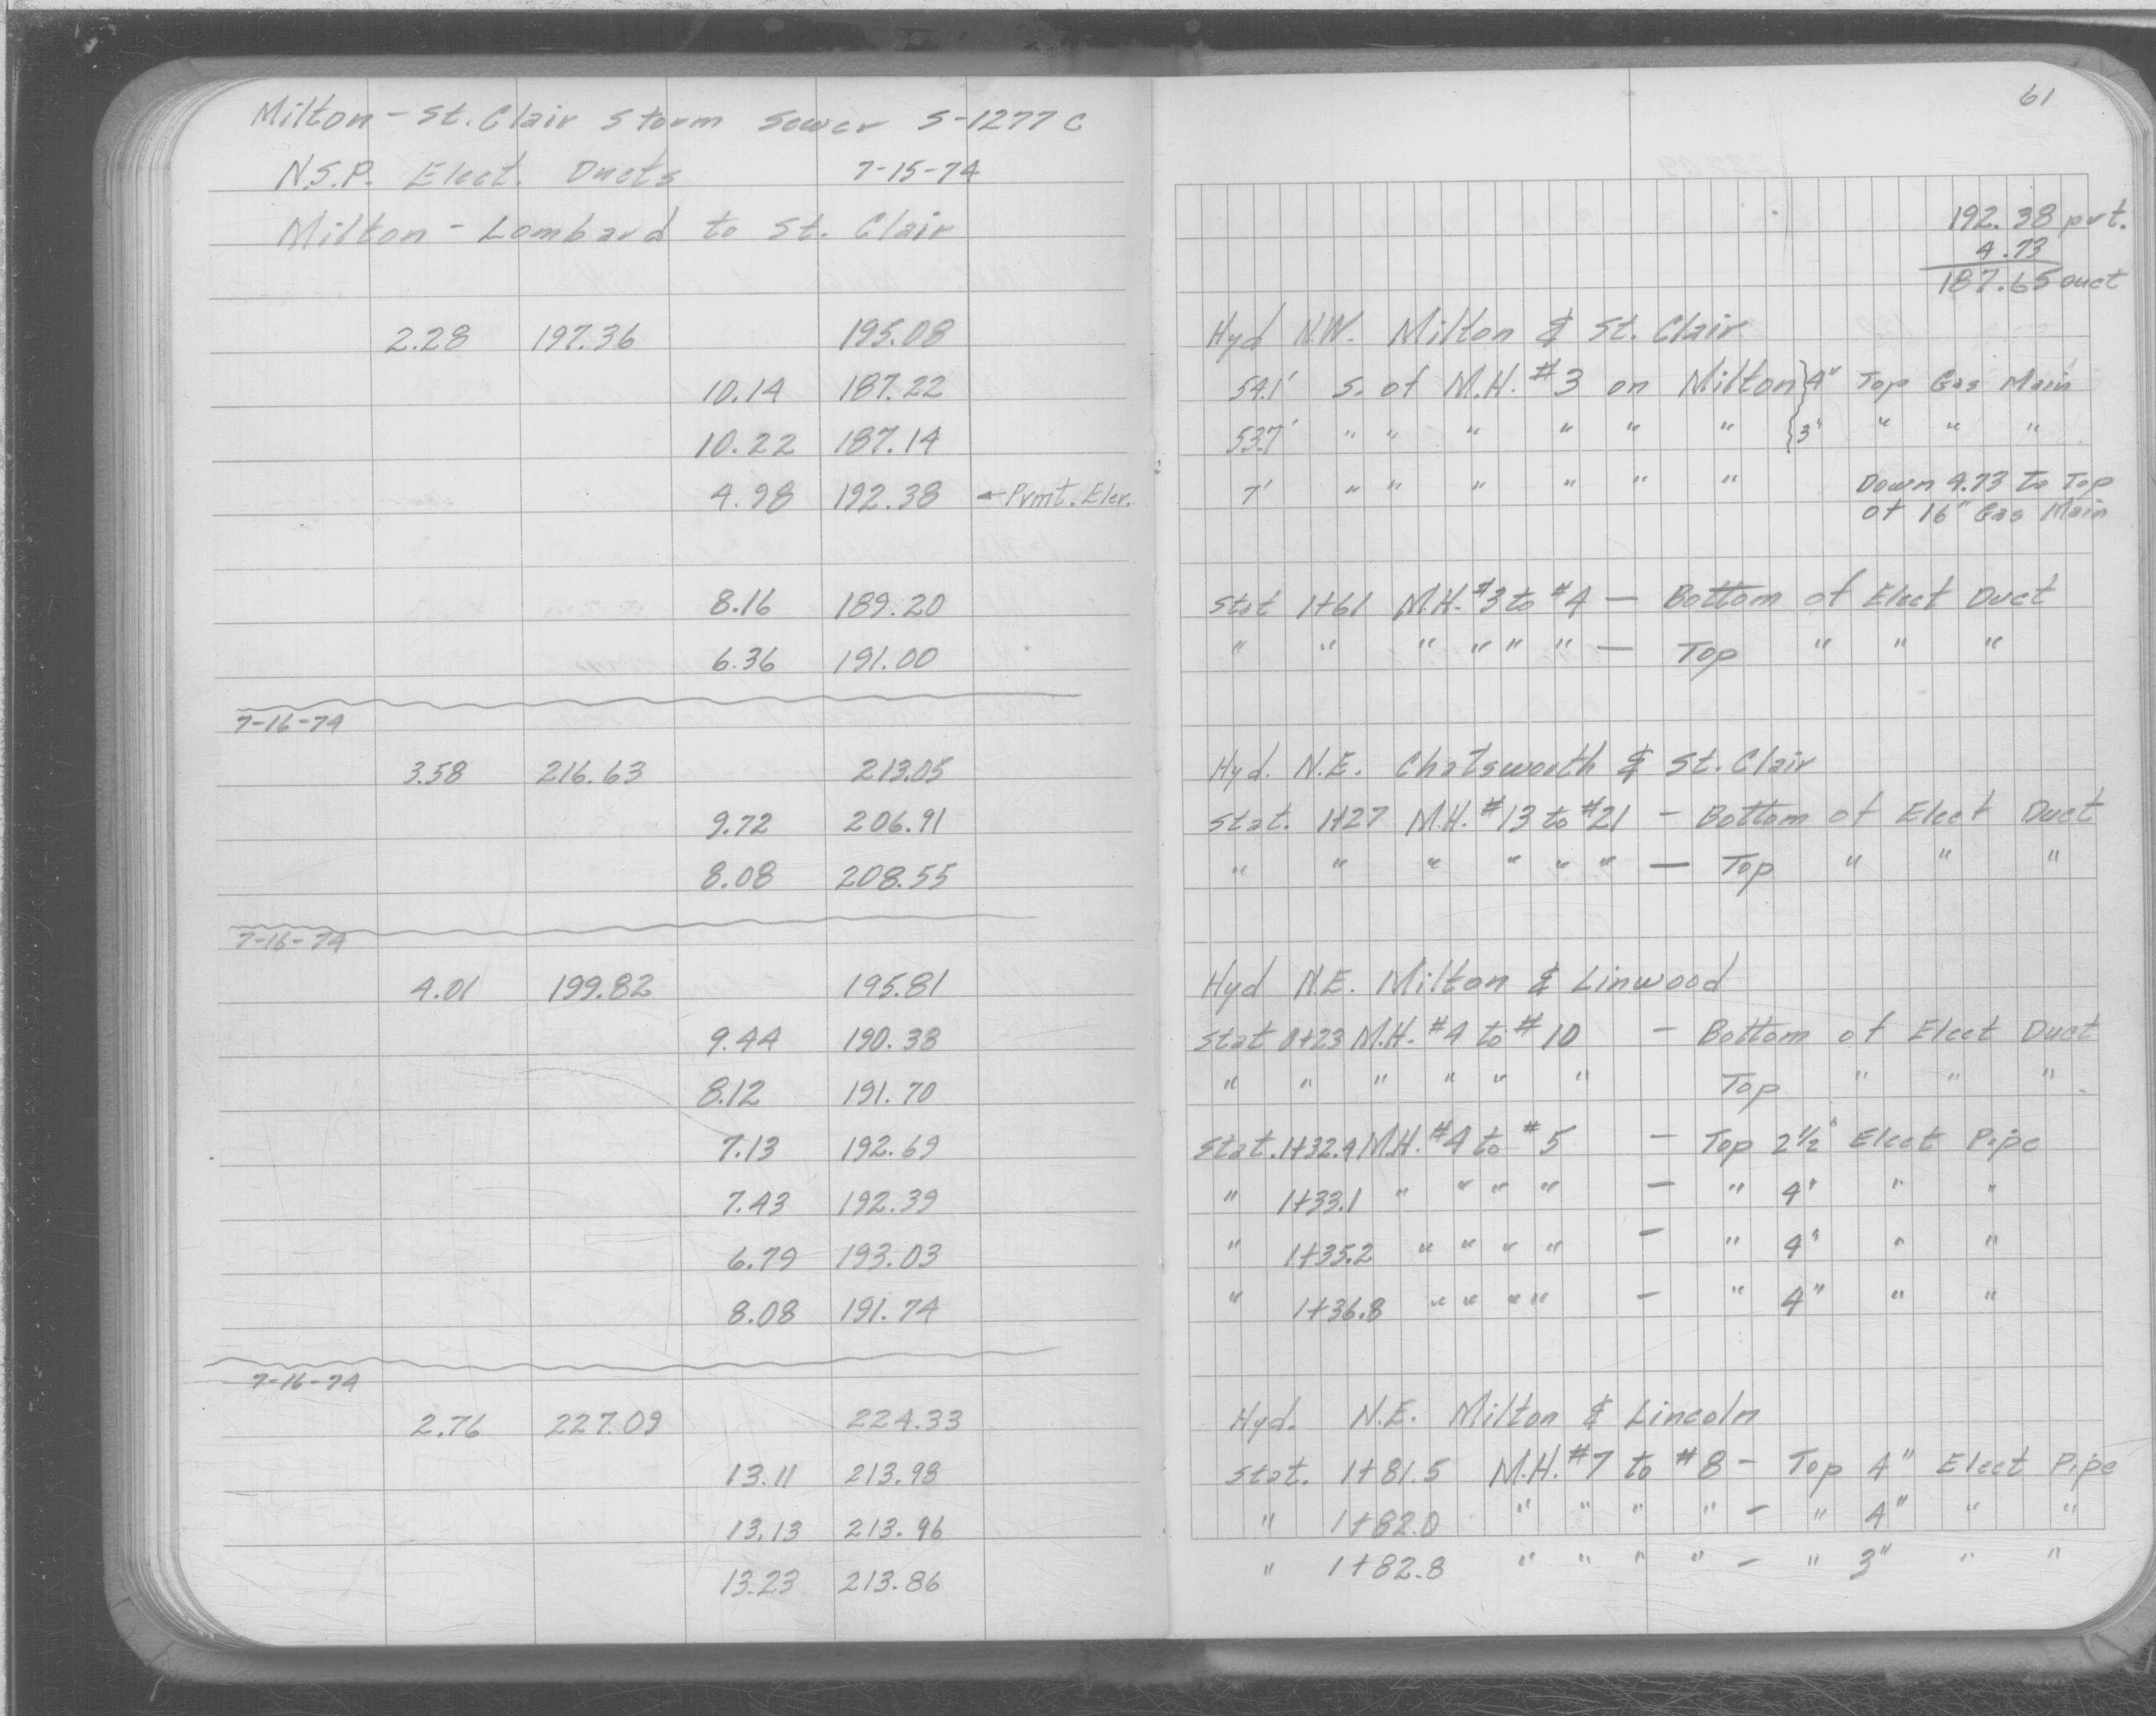 Milton - St. Clair Storm Sewer S-1277 C
N.S.P. Elect. Ducts 7-15-74
Milton - Lombard to St. Clair
2.28 197.36 195.08
10.14 187.22
10.22 187.14
4.98 192.38 ← Pvmt. Elev.
8.16 189.20
6.36 191.00
7-16-74
3.58 216.63 213.05
9.72 206.91
8.08 208.55
7-16-74
4.01 199.82 195.81
9.44 190.38
8.12 191.70
7.13 192.69
7.43 192.39
6.79 193.03
8.08 191.74
7-16-74
2.76 227.09 224.33
13.11 213.98
13.13 213.96
13.23 213.86
61
192.38 pvt.
4.73
187.65 duct
Hyd N.W. Milton & St. Clair
54.1' S. of M.H. #3 on Milton } 4" Top Gas Main
53.7' " " " " " " { 3" " " "
7' " " " " " " Down 4.73 to Top
of 16" Gas Main
Stat 1+61 M.H. #3 to #4 — Bottom of Elect Duct
" " " " " " — Top " " "
Hyd. N.E. Chatsworth & St. Clair
Stat. 1+27 M.H. #13 to #21 - Bottom of Elect Duct
" " " " " " — Top " " "
Hyd N.E. Milton & Linwood
Stat 0+23 M.H. #4 to #10 - Bottom of Elect Duct
" " " " " " Top " " "
Stat. 1+32.4 M.H. #4 to #5 - Top 2½" Elect Pipe
" 1+33.1 " " " " - " 4" " "
" 1+35.2 " " " " - " 4" " "
" 1+36.8 " " " " - " 4" " "
Hyd. N.E. Milton & Lincoln
Stat. 1+81.5 M.H. #7 to #8 - Top 4" Elect Pipe
" 1+82.0 " " " " - " 4" " "
" 1+82.8 " " " " - " 3" " "